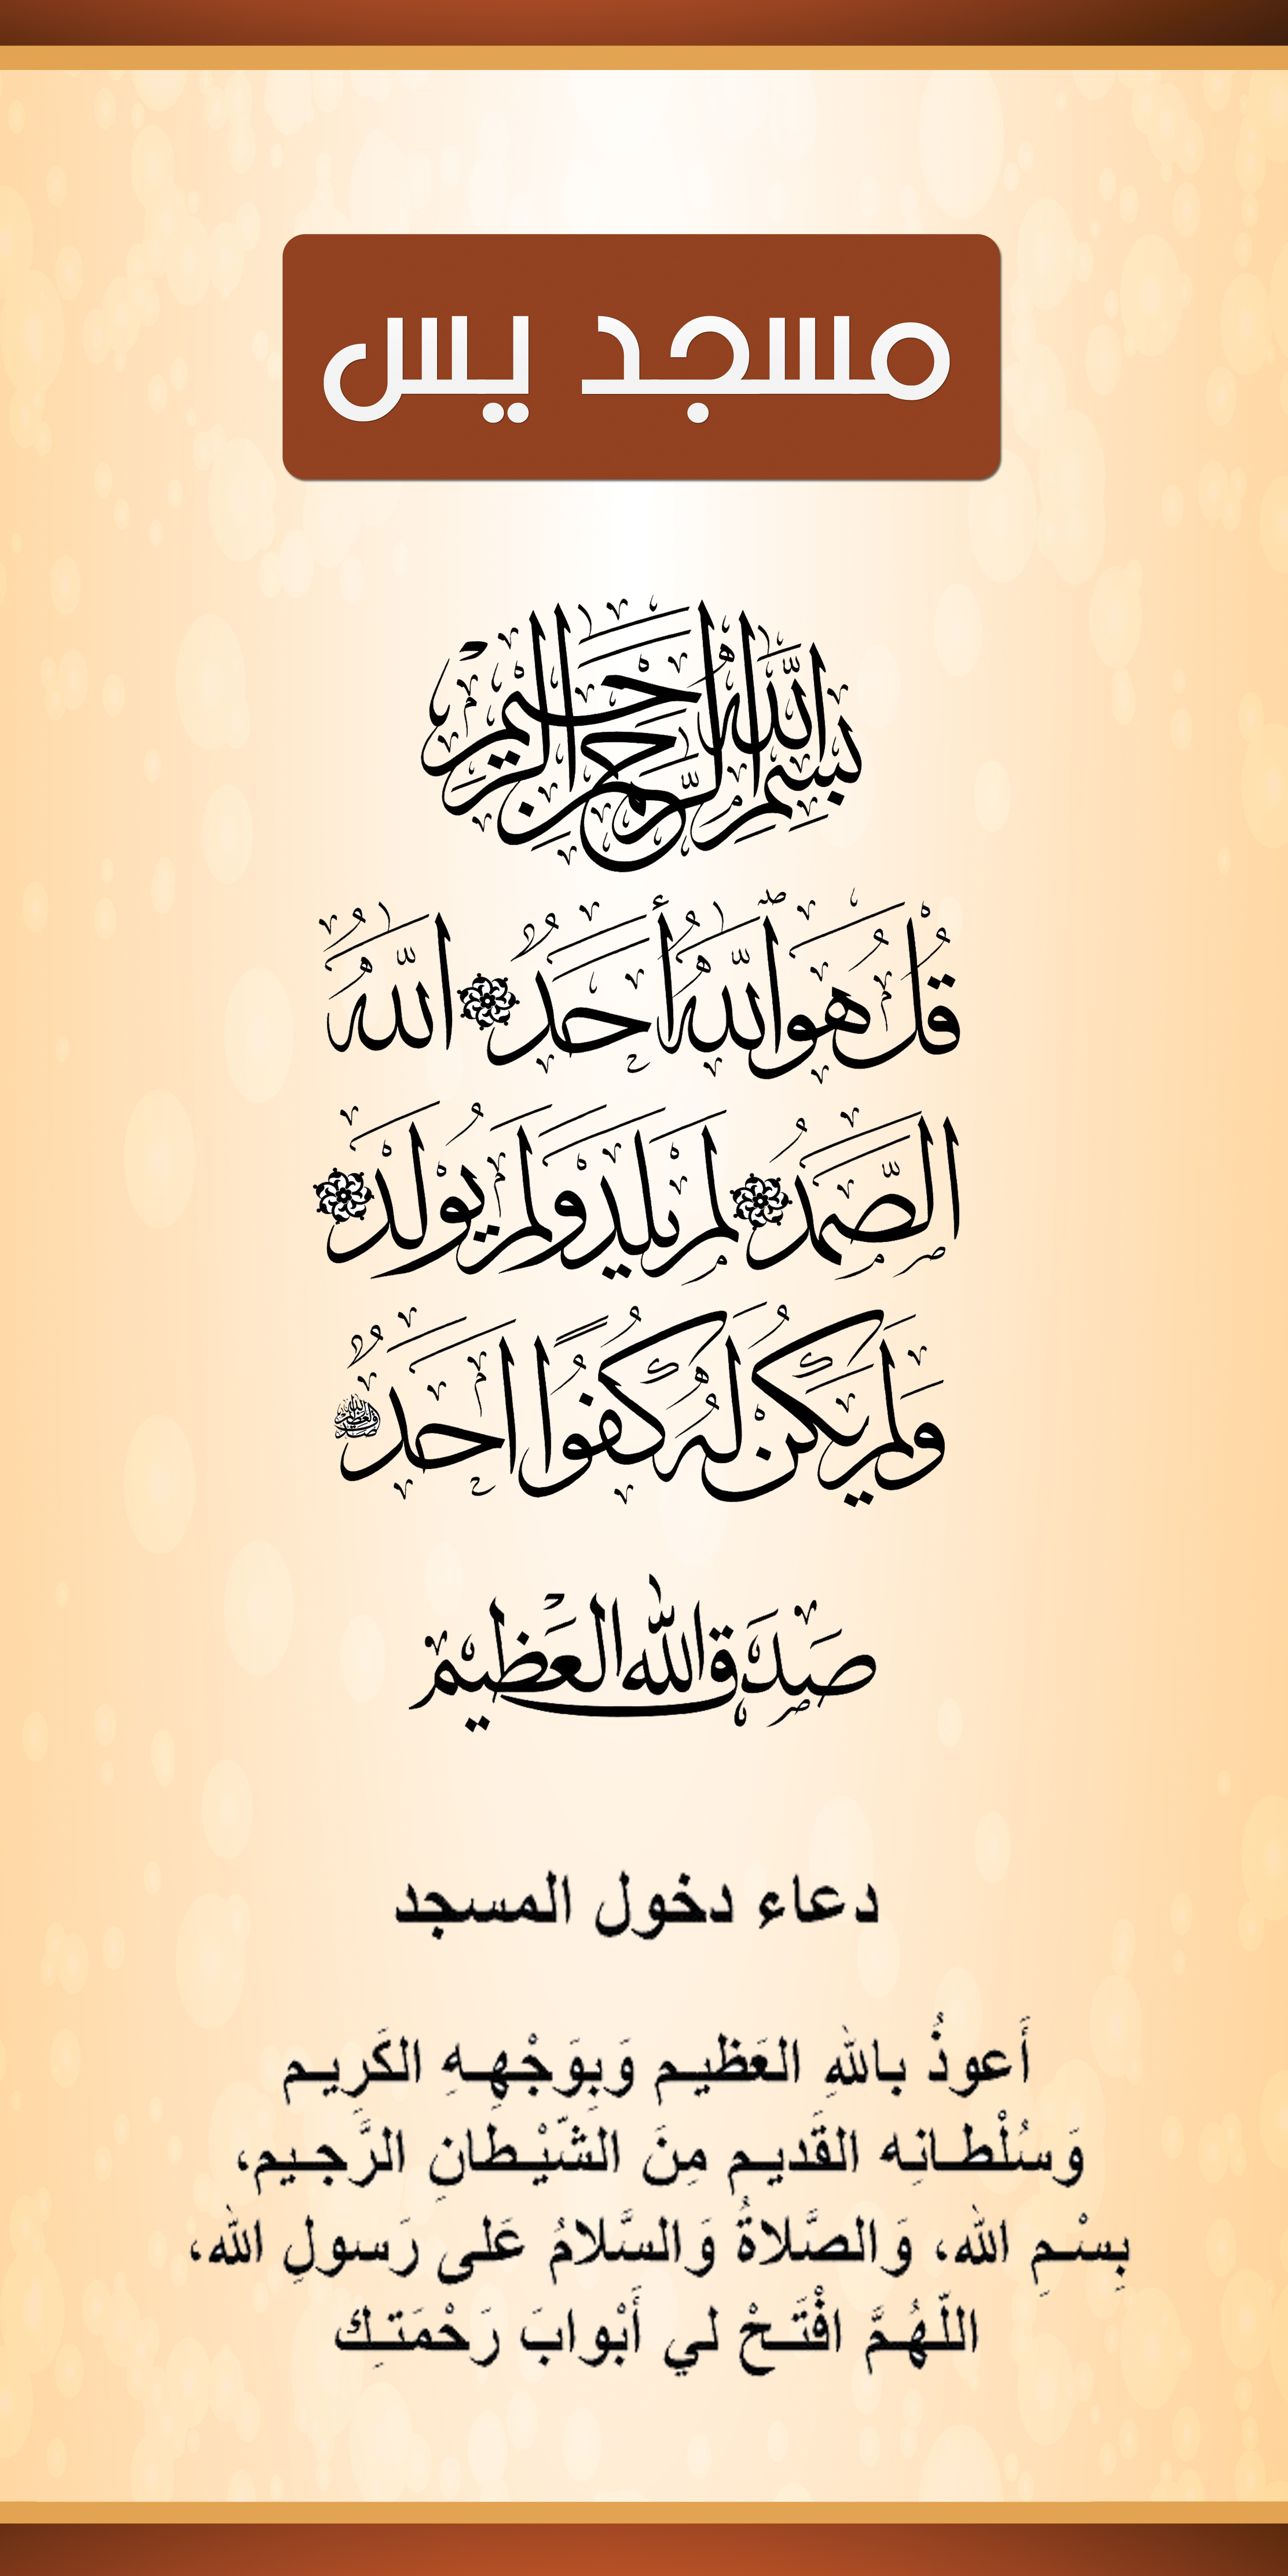 مسجد يس
بِسْمِ اللَّهِ الرَّحْمَنِ الرَّحِيمِ
قُلْ هُوَ اللَّهُ أَحَدٌ اللَّهُ
الصَّمَدُ لَمْ يَلِدْ وَلَمْ يُولَدْ
وَلَمْ يَكُنْ لَهُ كُفُوًا أَحَدٌ
صَدَقَ اللَّهُ الْعَظِيم
دعاء دخول المسجد
أَعوذُ باللهِ العَظيـم وَبِوَجْهِـهِ الكَرِيـم
وَسُلْطـانِه القَديـم مِنَ الشّيْـطانِ الرَّجـيم،
بِسْـمِ الله، وَالصَّلاةُ وَالسَّلامُ عَلى رَسولِ الله،
اللّهُـمَّ افْتَـحْ لي أَبْوابَ رَحْمَتـِك